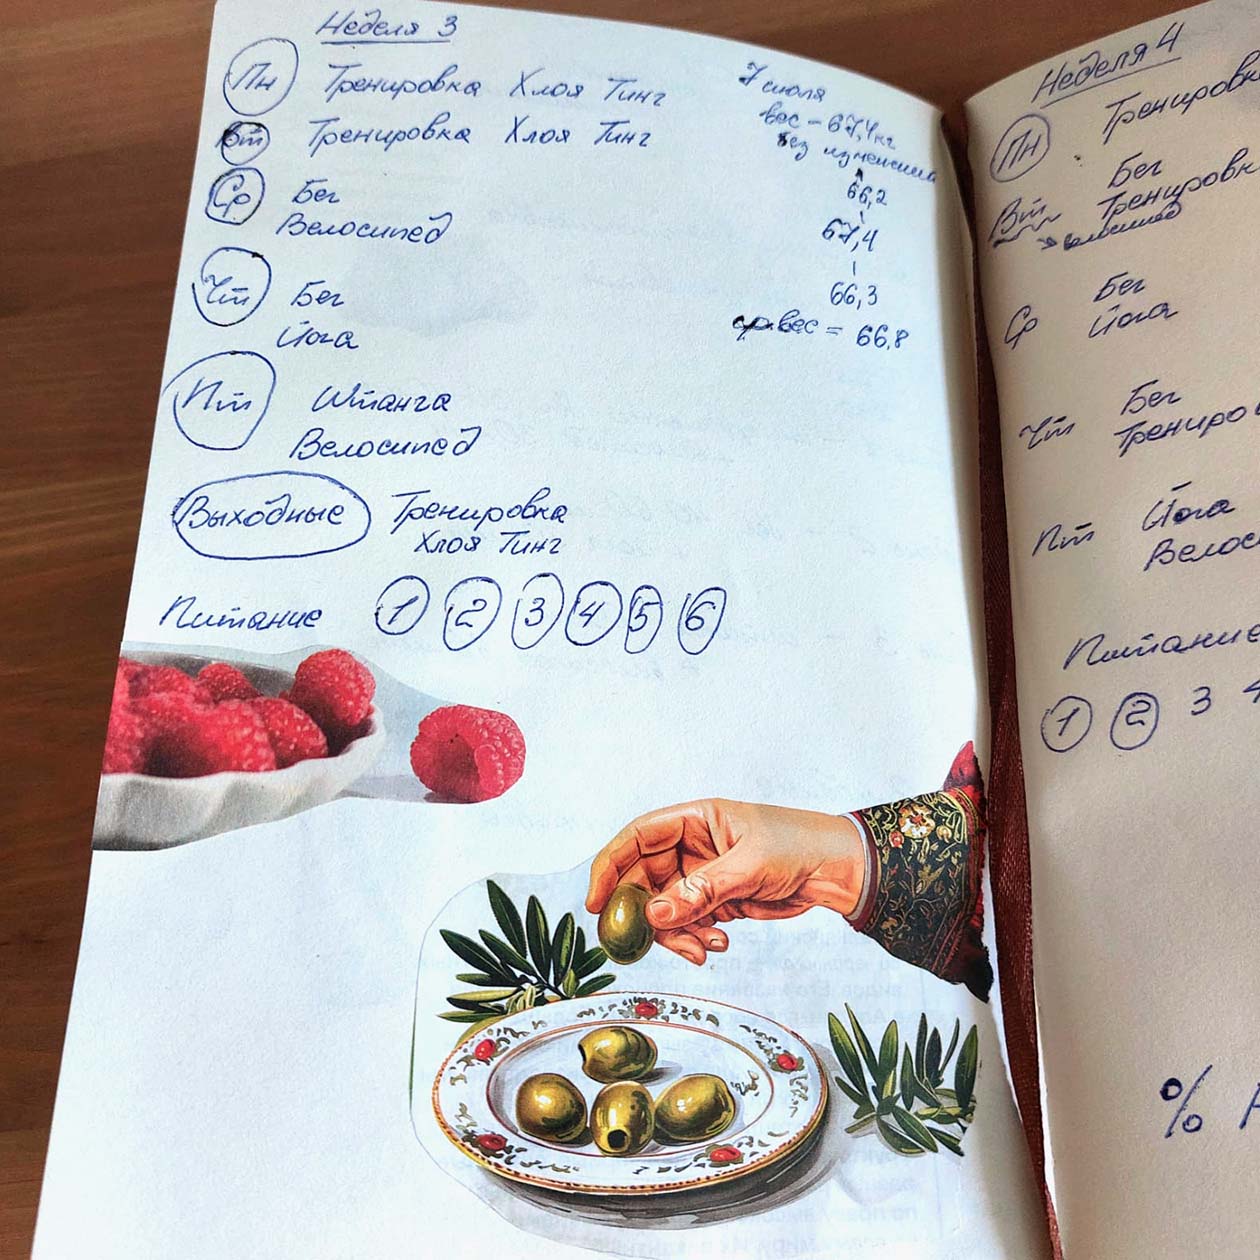 Неделя 3
Пн Тренировка Хлоя Тинг
Вт Тренировка Хлоя Тинг
Ср Бег
Велосипед
Чт Бег
Йога
Пт Штанга
Велосипед
Выходные Тренировка
Хлоя Тинг
Питание 1 2 3 4 5 6
7 июля
вес - 67,4 кг
без изменения
66,2
67,4
66,3
ср. вес = 66,8
Неделя 4
Пн Тренировка
Бег
Вт Тренировк
велосипед
Бег
Ср Йога
Бег
Чт Трениро
Пт Йога
Велос
Питание
1 2 3 4
%